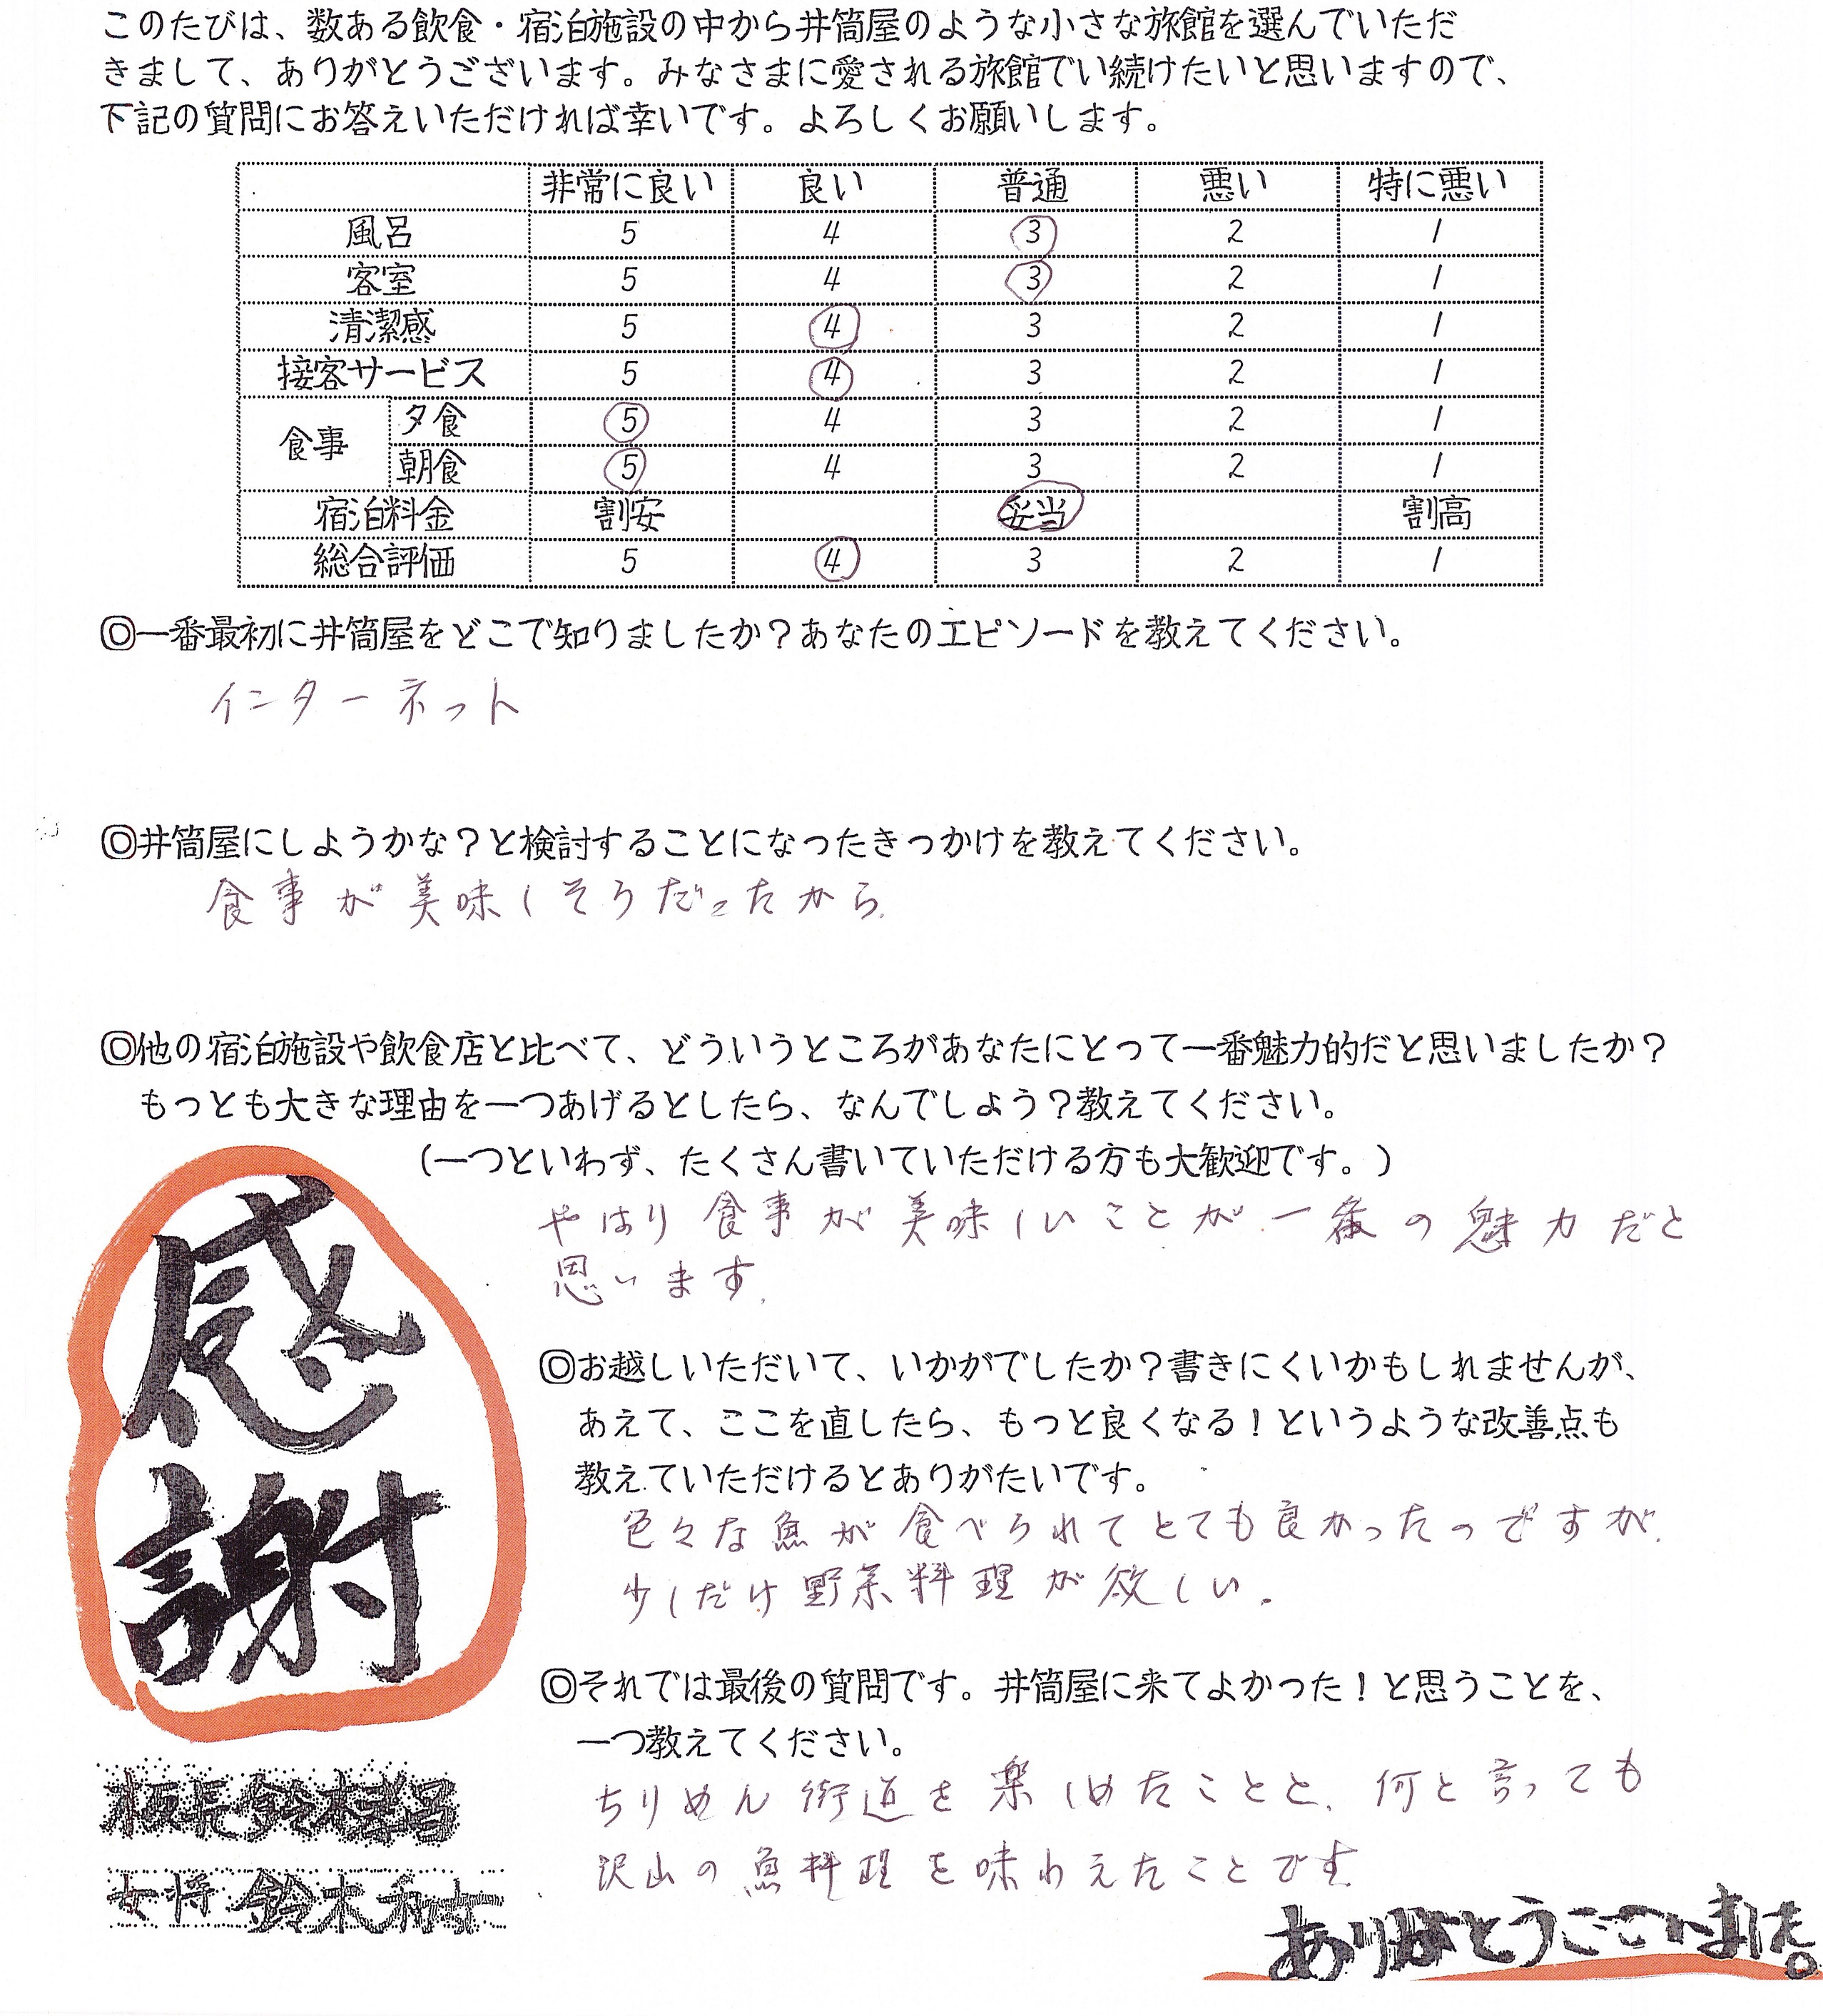 このたびは、数ある飲食・宿泊施設の中から井筒屋のような小さな旅館を選んでいただ
きまして、ありがとうございます。みなさまに愛される旅館でい続けたいと思いますので、
下記の質問にお答えいただければ幸いです。よろしくお願いします。
非常に良い 良い 普通 悪い 特に悪い
風呂 5 4 3 2 1
客室 5 4 3 2 1
清潔感 5 4 3 2 1
接客サービス 5 4 3 2 1
食事 夕食 5 4 3 2 1
朝食 5 4 3 2 1
宿泊料金 割安 妥当 割高
総合評価 5 4 3 2 1
◎一番最初に井筒屋をどこで知りましたか？あなたのエピソードを教えてください。
インターネット
◎井筒屋にしようかな？と検討することになったきっかけを教えてください。
食事が美味しそうだったから
◎他の宿泊施設や飲食店と比べて、どういうところがあなたにとって一番魅力的だと思いましたか？
もっとも大きな理由を一つあげるとしたら、なんでしょう？教えてください。
（一つといわず、たくさん書いていただける方も大歓迎です。）
やはり食事が美味しいことが一番の魅力だと
思います。
◎お越しいただいて、いかがでしたか？書きにくいかもしれませんが、
あえて、ここを直したら、もっと良くなる！というような改善点も
教えていただけるとありがたいです。
色々な魚が食べられてとても良かったのですが、
少しだけ野菜料理が欲しい。
◎それでは最後の質問です。井筒屋に来てよかった！と思うことを、
一つ教えてください。
ちりめん街道を楽しめたことと、何と言っても
沢山の魚料理を味わえたことです
感
謝
板長 鈴木
女将 鈴木 和
ありがとうございました。